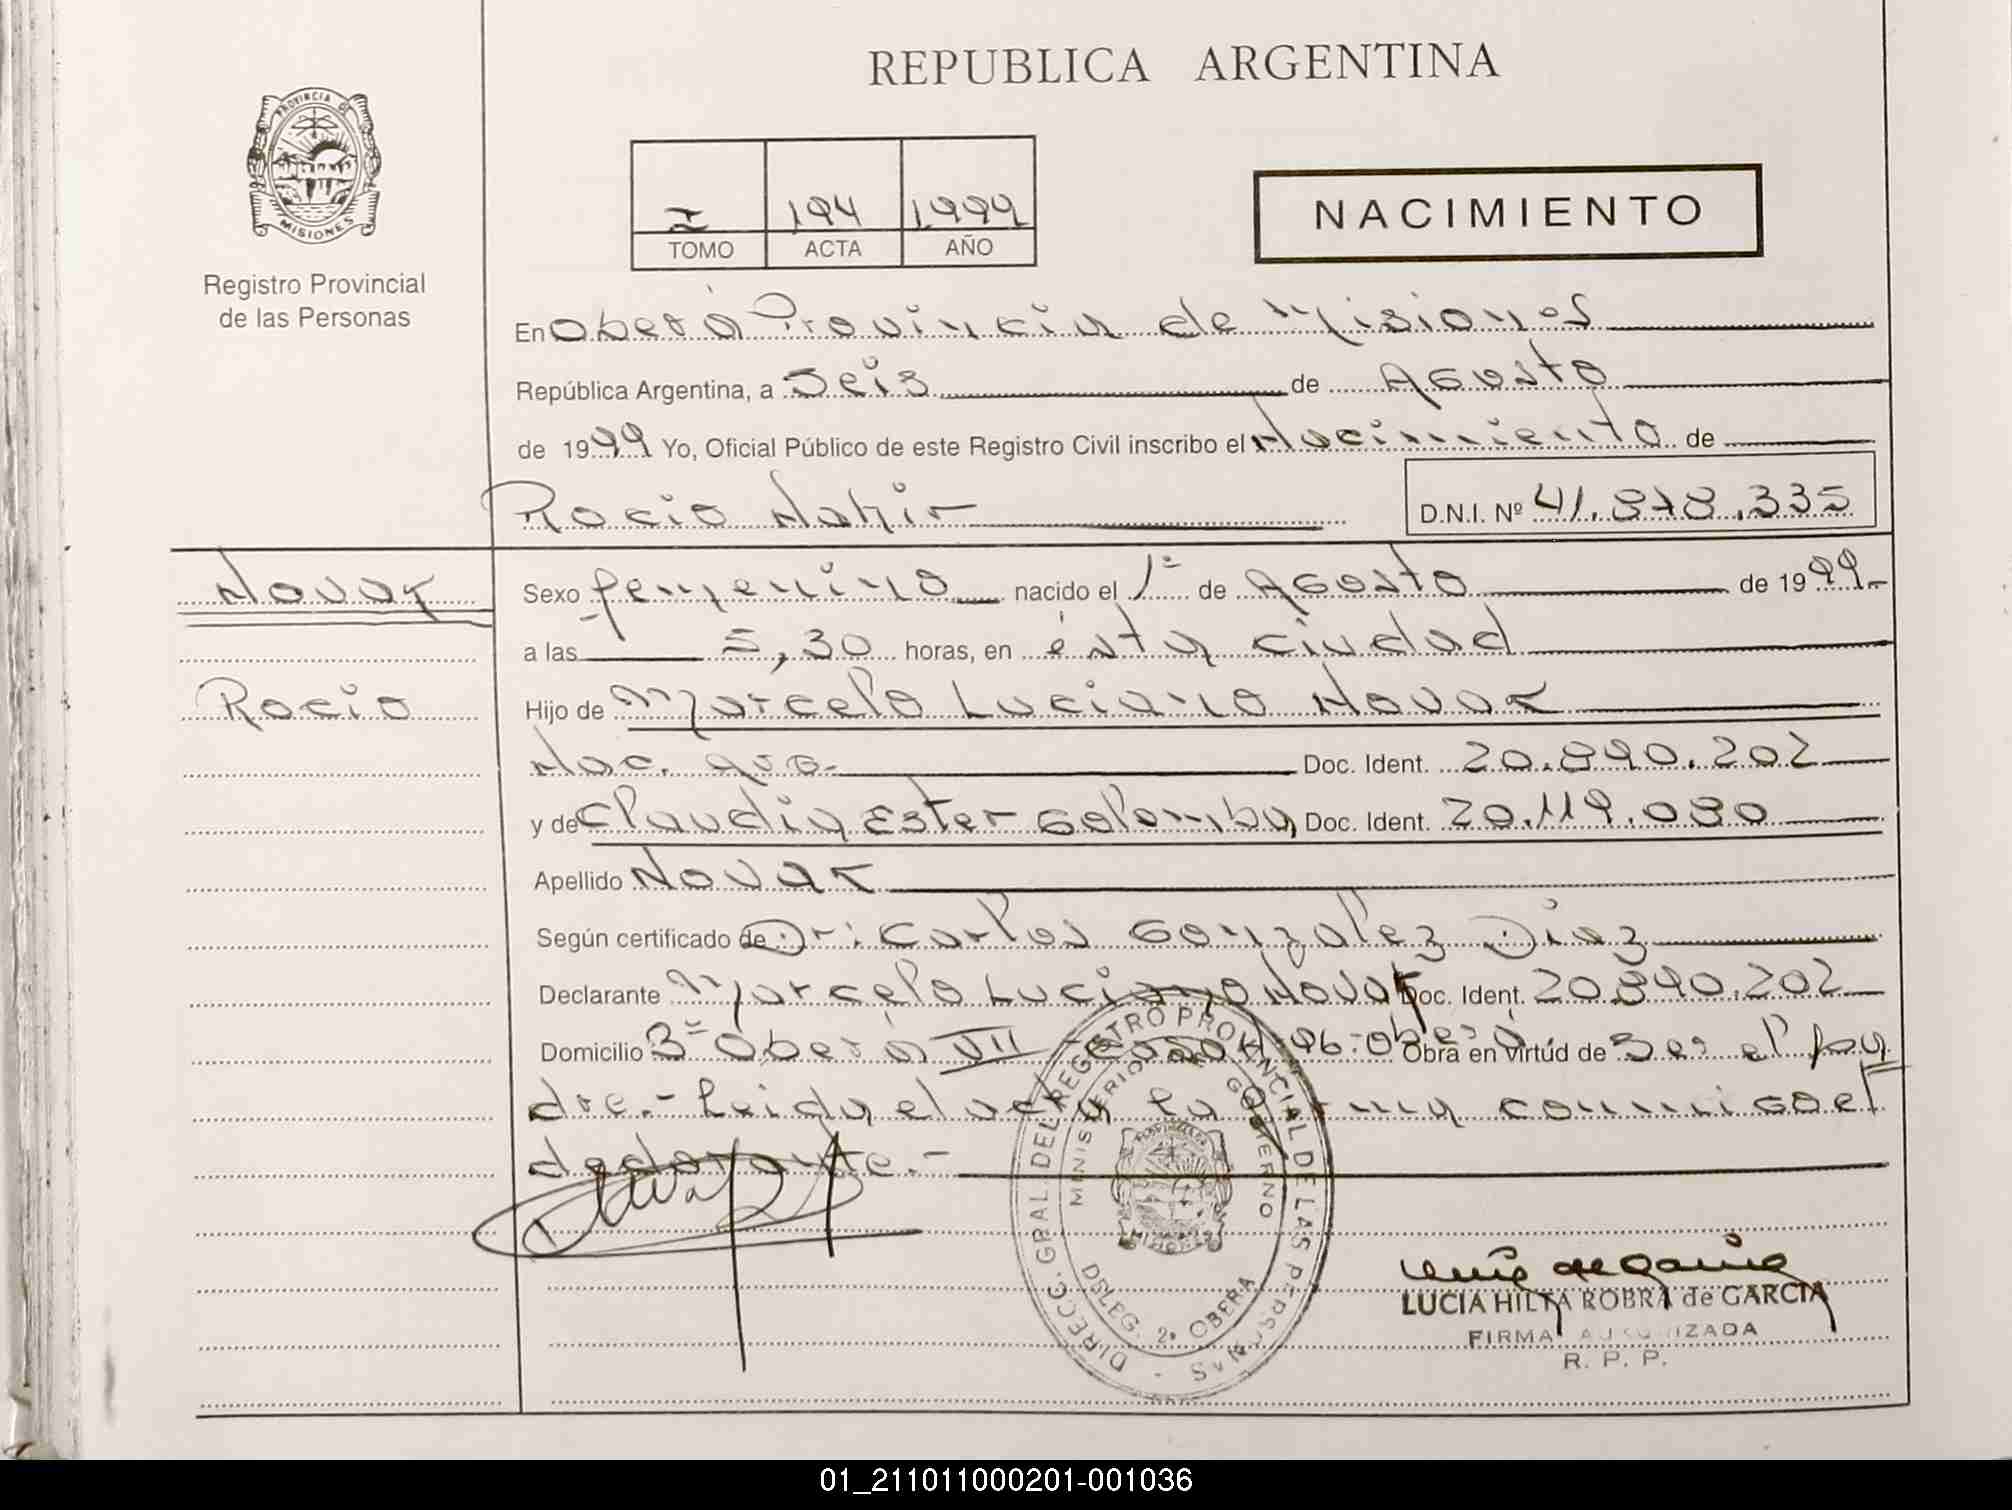 REPUBLICA ARGENTINA
PROVINCIA DE
MISIONES
Registro Provincial
de las Personas
I 194 1999
TOMO ACTA AÑO
NACIMIENTO
En Oberá Provincia de Misiones
República Argentina, a Seis de Agosto
de 1999 Yo, Oficial Público de este Registro Civil inscribo el Nacimiento de
Rocio Nahir
D.N.I. Nº 41.878.335
Novak
Rocio
Sexo femenino nacido el 1º de Agosto de 1999.-
a las 5,30 horas, en ésta ciudad
Hijo de Marcelo Luciano Novak
Nac. Doc. Ident. 20.890.202
y de Claudia Ester Golomba, Doc. Ident. 20.119.080
Apellido Novak
Según certificado de Dr: Carlos Gonzalez Diaz
Declarante Marcelo Luciano Novak Doc. Ident. 20.890.202
Domicilio Bº Oberá VII casa Nº 96-Oberá Obra en virtúd de Ser el pa
dre.- Leida el acta la firma conmigo el
declarante.-
DIRECC. GRAL. DEL REGISTRO PROVINCIAL DE LAS PERSONAS
MINISTERIO DE GOBIERNO
DELEG. 2ª OBERA
LUCIA HILTA ROBRA de GARCIA
FIRMA AUTORIZADA
R. P. P.
01_211011000201-001036